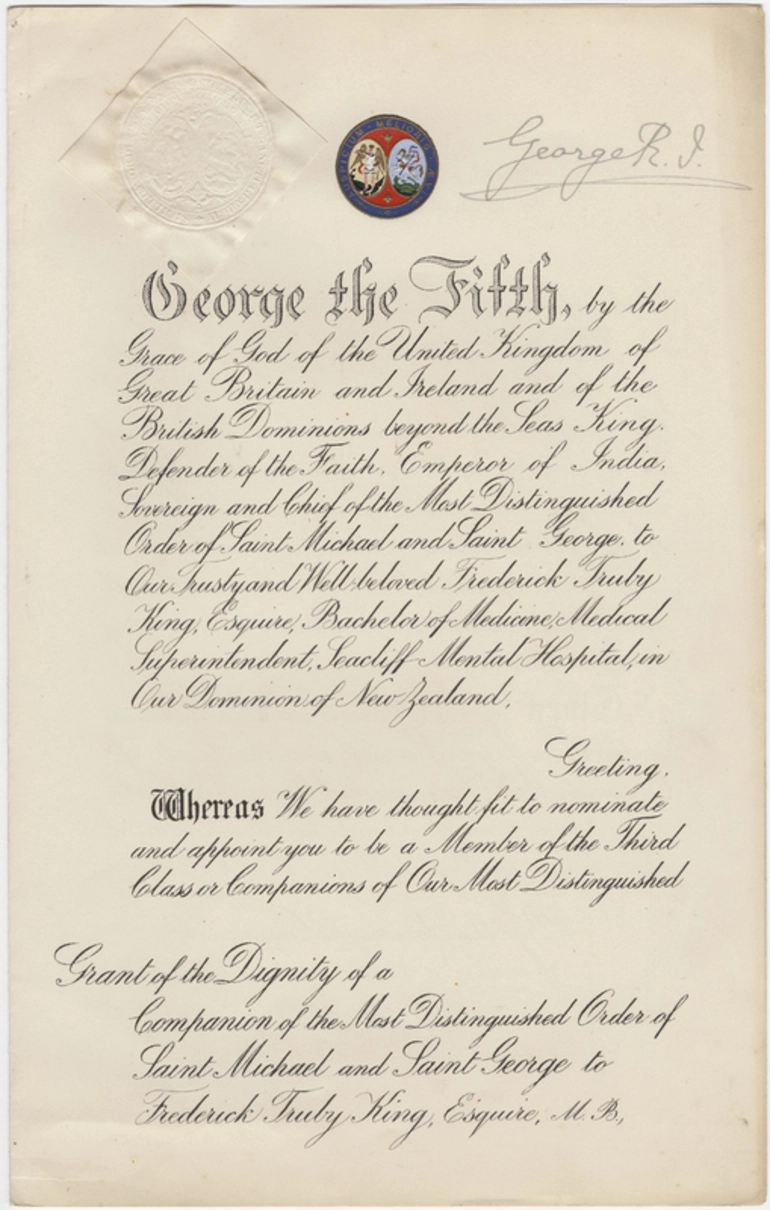 AUSPICIUM MELIORIS ÆVI
George R. I.
George the Fifth, by the
Grace of God of the United Kingdom of
Great Britain and Ireland and of the
British Dominions beyond the Seas King.
Defender of the Faith, Emperor of India,
Sovereign and Chief of the Most Distinguished
Order of Saint Michael and Saint George, to
Our Trusty and Well-beloved Frederick Truby
King, Esquire, Bachelor of Medicine, Medical
Superintendent, Seacliff Mental Hospital, in
Our Dominion of New Zealand,
Greeting.
Whereas We have thought fit to nominate
and appoint you to be a Member of the Third
Class or Companions of Our Most Distinguished
Grant of the Dignity of a
Companion of the Most Distinguished Order of
Saint Michael and Saint George to
Frederick Truby King, Esquire, M.B.,